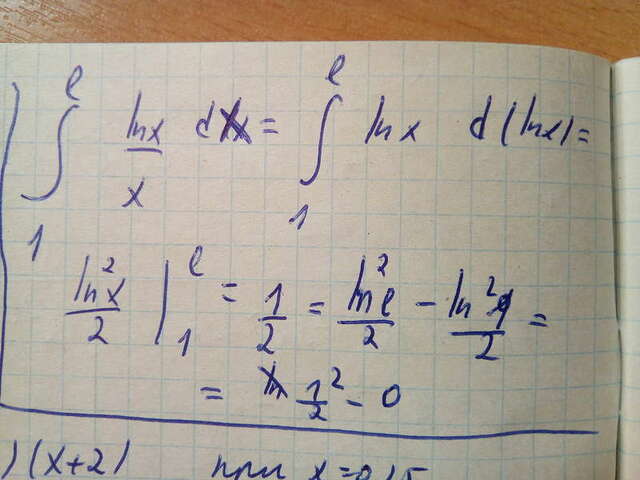 ∫₁ᵉ lnx/x dx = ∫₁ᵉ lnx d(lnx) =
ln²x/2 |₁ᵉ = 1/2 = ln²e/2 - ln²1/2 =
= 1²/2 - 0
)(x+2) при x=0,15